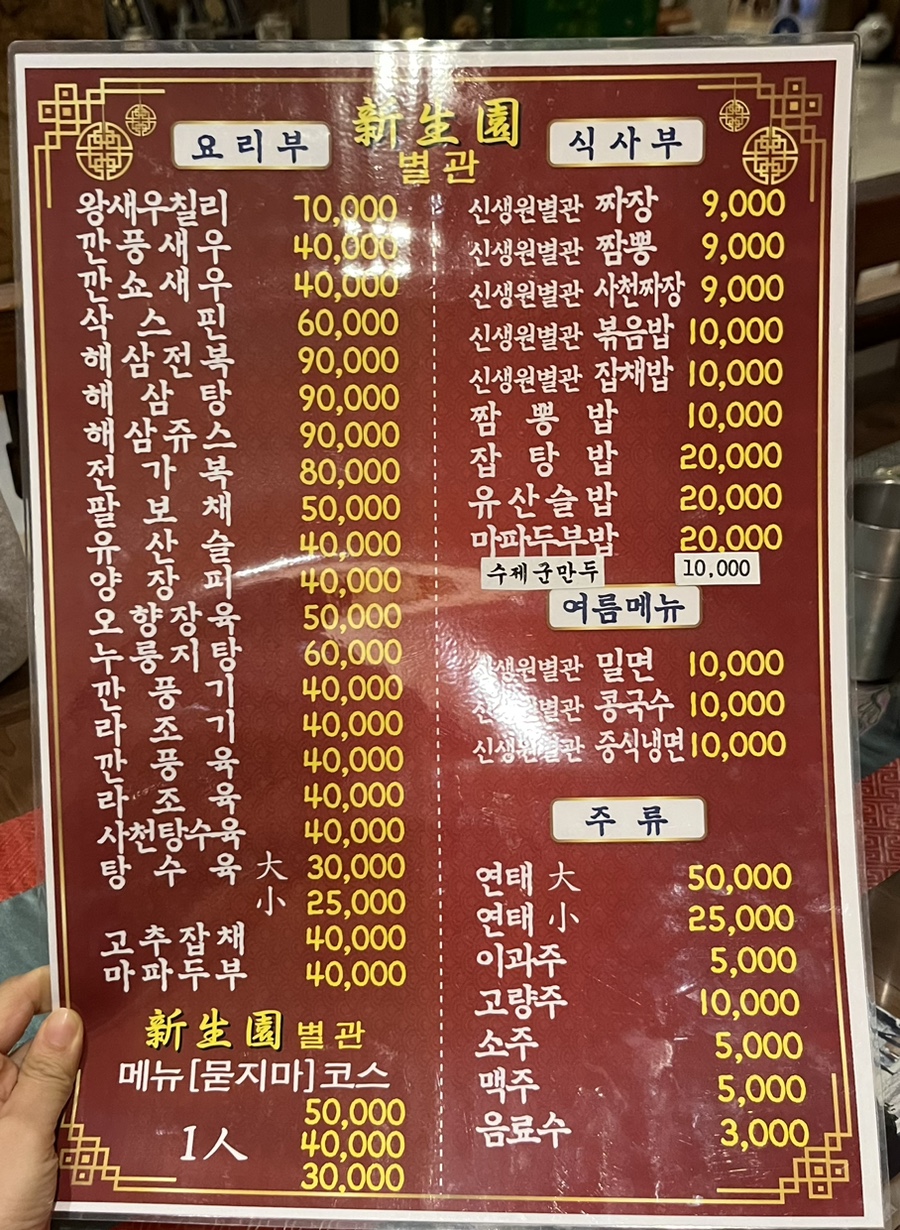 新生園
별관
요리부
왕새우칠리 70,000
깐풍새우 40,000
깐쇼새우 40,000
삭스핀 60,000
해삼전복 90,000
해삼탕 90,000
해삼쥬스 90,000
전가복 80,000
팔보채 50,000
유산슬 40,000
양장피 40,000
오향장육 50,000
누룽지탕 60,000
깐풍기 40,000
라조기 40,000
깐풍육 40,000
라조육 40,000
사천탕수육 40,000
탕수육 大 30,000
小 25,000
고추잡채 40,000
마파두부 40,000
新生園 별관
메뉴[묻지마]코스
50,000
1人 40,000
30,000
식사부
신생원별관 짜장 9,000
신생원별관 짬뽕 9,000
신생원별관 사천짜장 9,000
신생원별관 볶음밥 10,000
신생원별관 잡채밥 10,000
짬뽕밥 10,000
잡탕밥 20,000
유산슬밥 20,000
마파두부밥 20,000
수제군만두 10,000
여름메뉴
신생원별관 밀면 10,000
신생원별관 콩국수 10,000
신생원별관 중식냉면 10,000
주류
연태 大 50,000
연태 小 25,000
이과주 5,000
고량주 10,000
소주 5,000
맥주 5,000
음료수 3,000